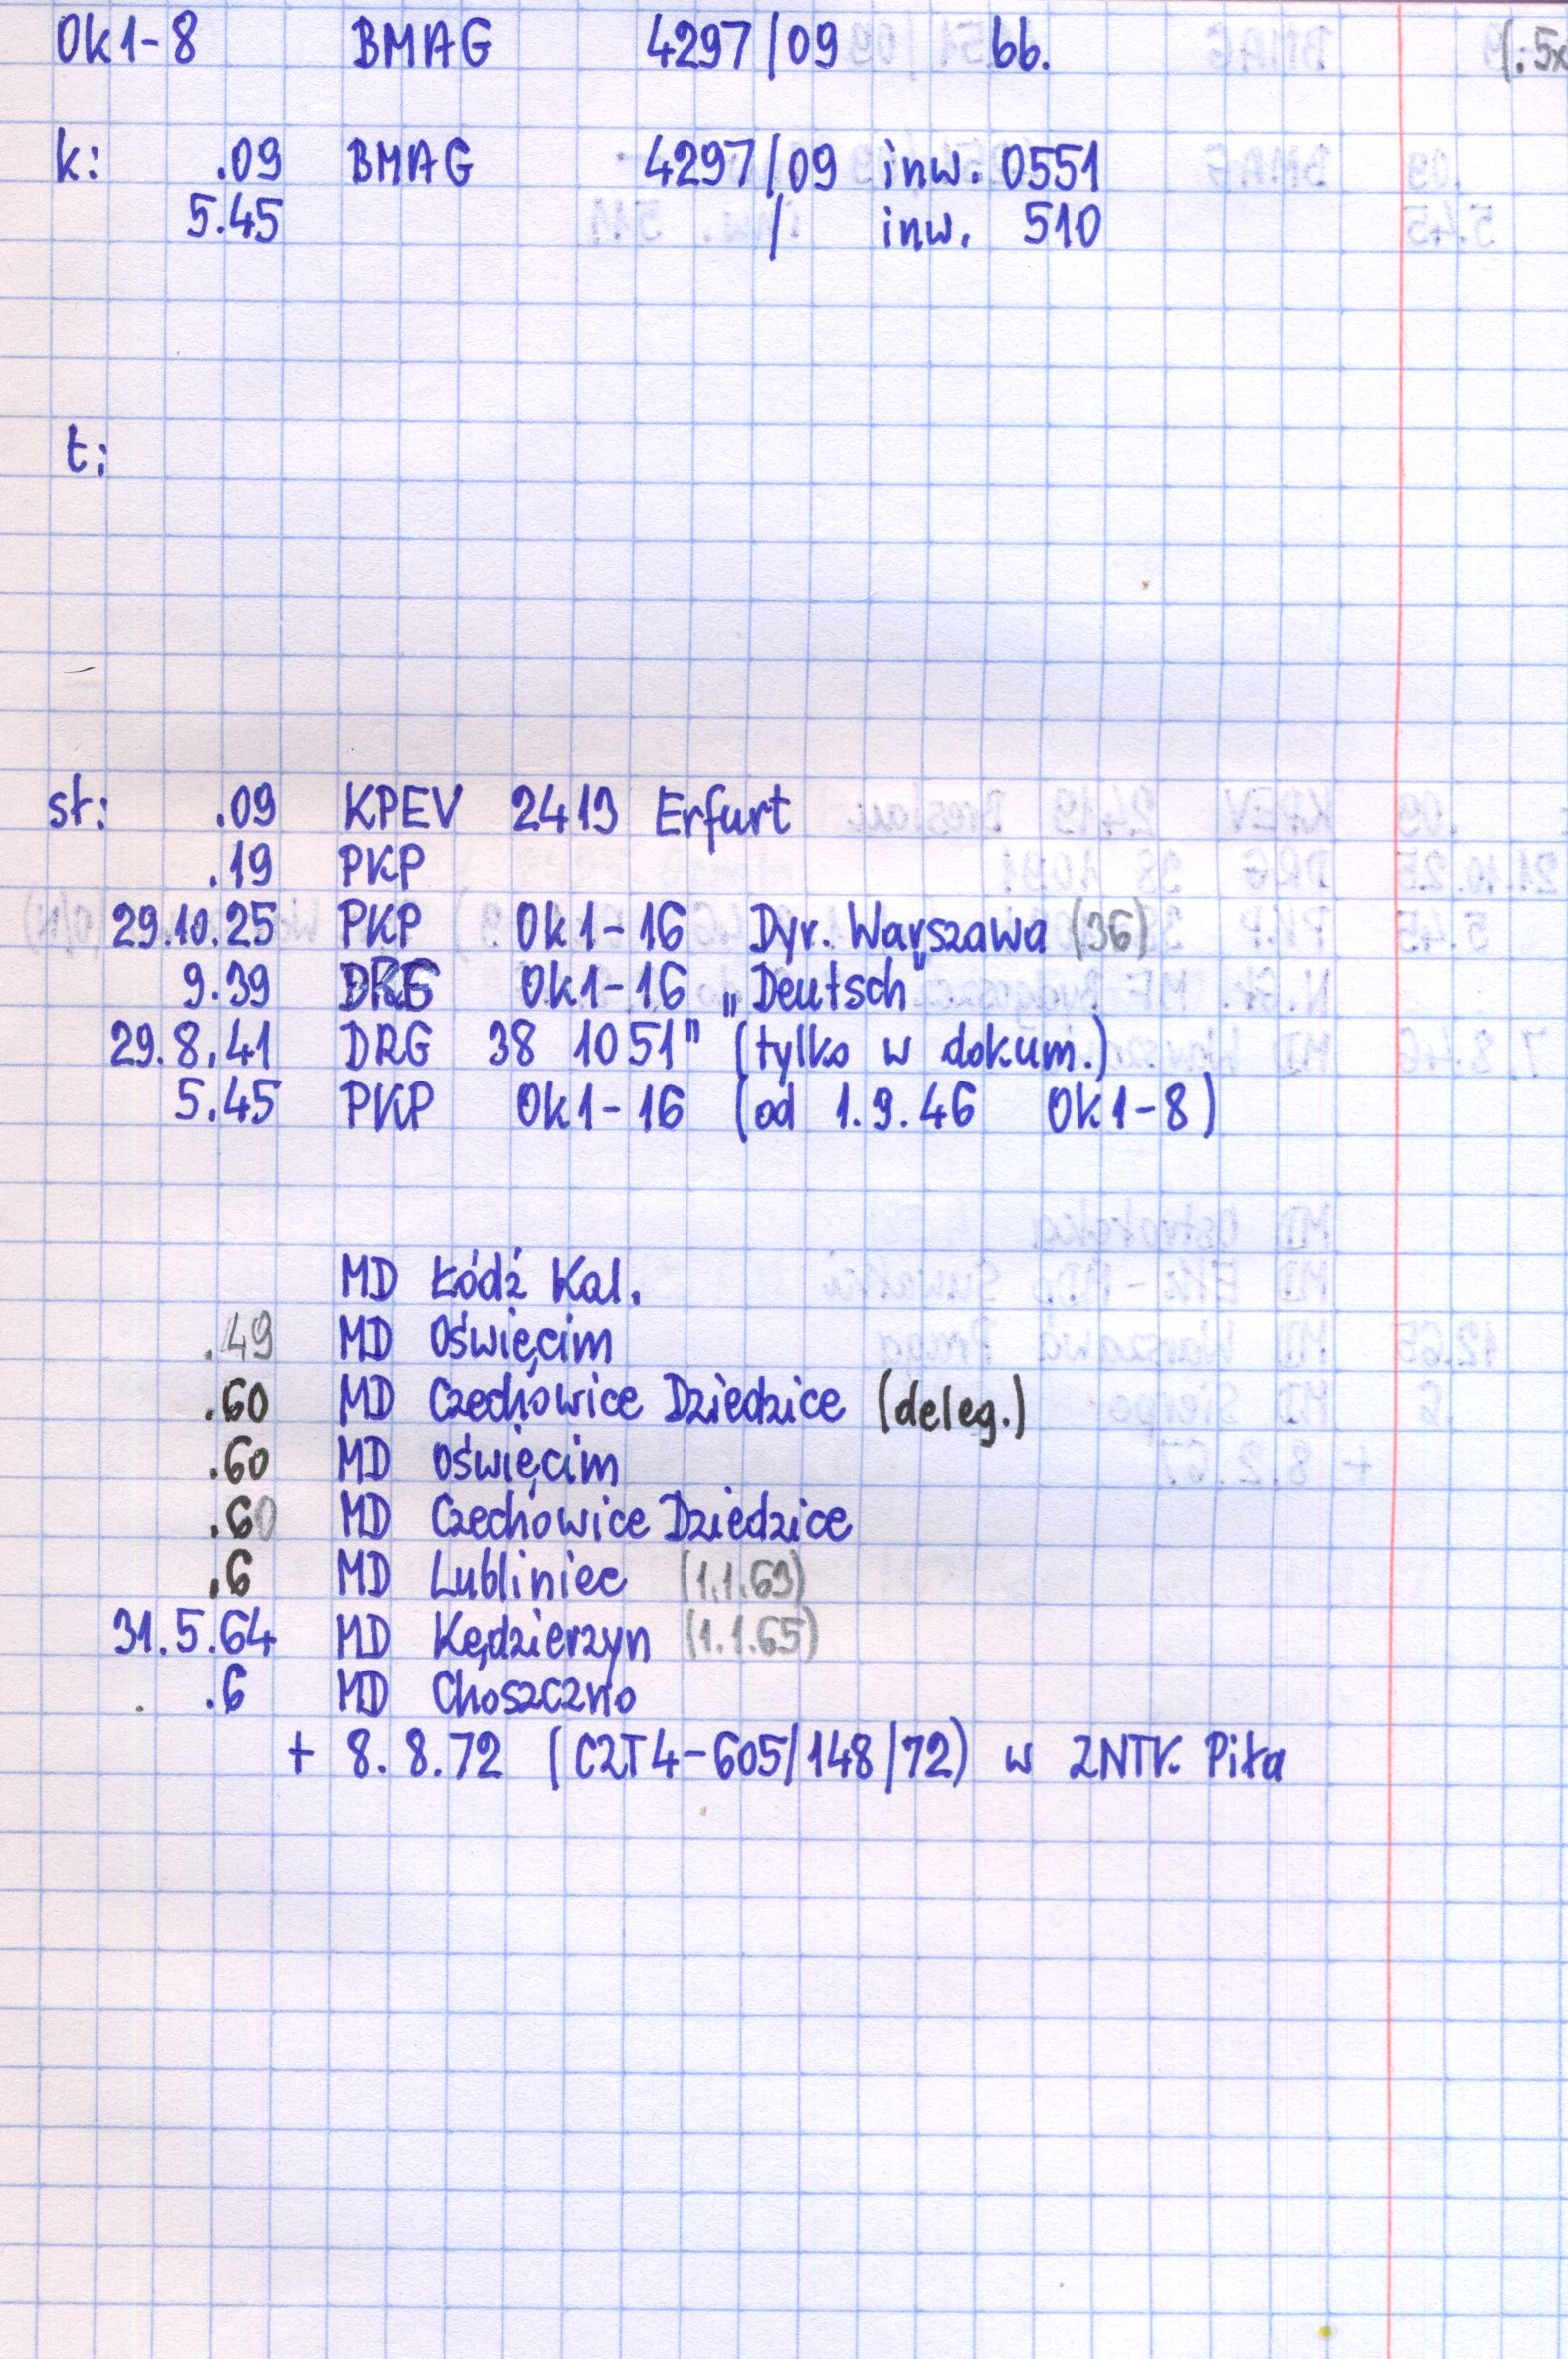 Ok1-8 BMAG 4297/09 bb. (:5x
k: .09 BMAG 4297/09 inw. 0551
5.45 / inw. 510
t:
st: .09 KPEV 2419 Erfurt
.19 PKP
29.10.25 PKP Ok1-16 Dyr. Warszawa (36)
9.39 DRG Ok1-16 „Deutsch"
29.8.41 DRG 38 1051" (tylko w dokum.)
5.45 PKP Ok1-16 (od 1.9.46 Ok1-8)
MD Łódź Kal.
.49 MD Oświęcim
.60 MD Czechowice Dziedzice (deleg.)
.60 MD Oświęcim
.60 MD Czechowice Dziedzice
.6 MD Lubliniec (1.1.63)
31.5.64 MD Kędzierzyn (1.1.65)
.6 MD Choszczno
+ 8.8.72 (C2T4-605/148/72) w ZNTK Piła